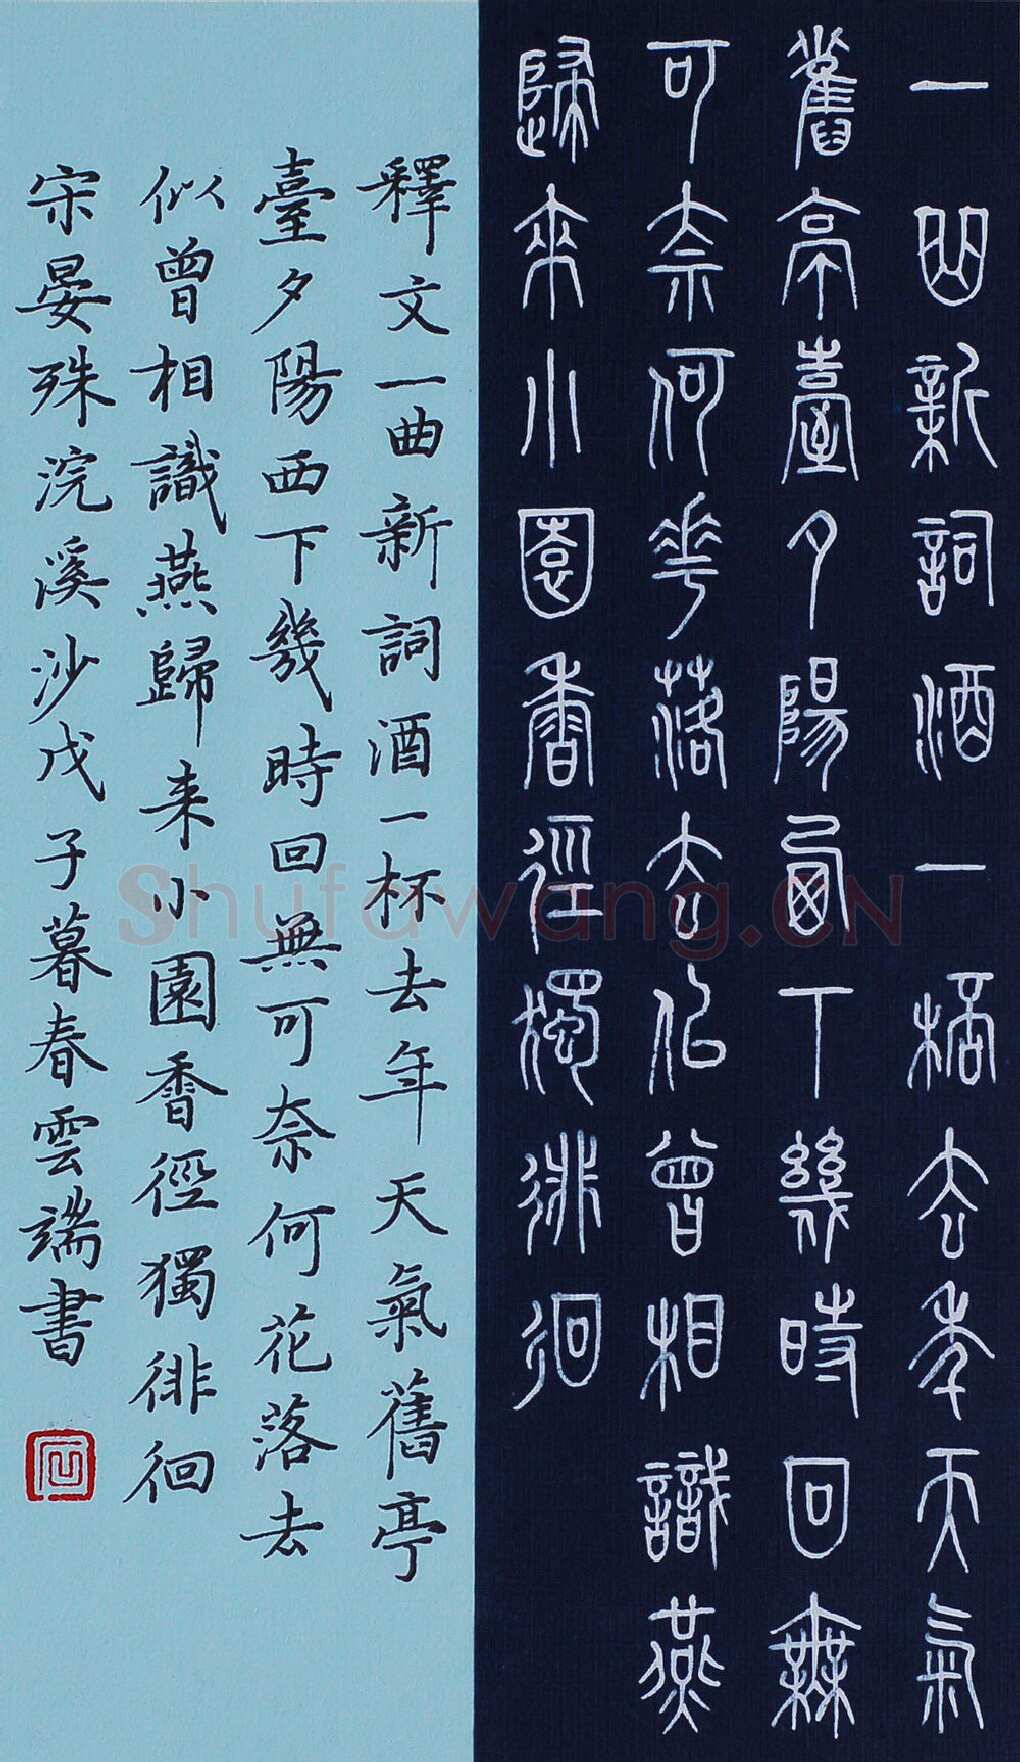 一曲新詞酒一桮去年天氣
舊亭臺夕陽西下幾時回無
可奈何花落去佀曾相識燕
歸來小園香徑獨徘徊
釋文一曲新詞酒一杯去年天氣舊亭
臺夕陽西下幾時回無可奈何花落去
似曾相識燕歸来小園香徑獨徘徊
宋晏殊浣溪沙戊子暮春雲端書
Shufawang.CN